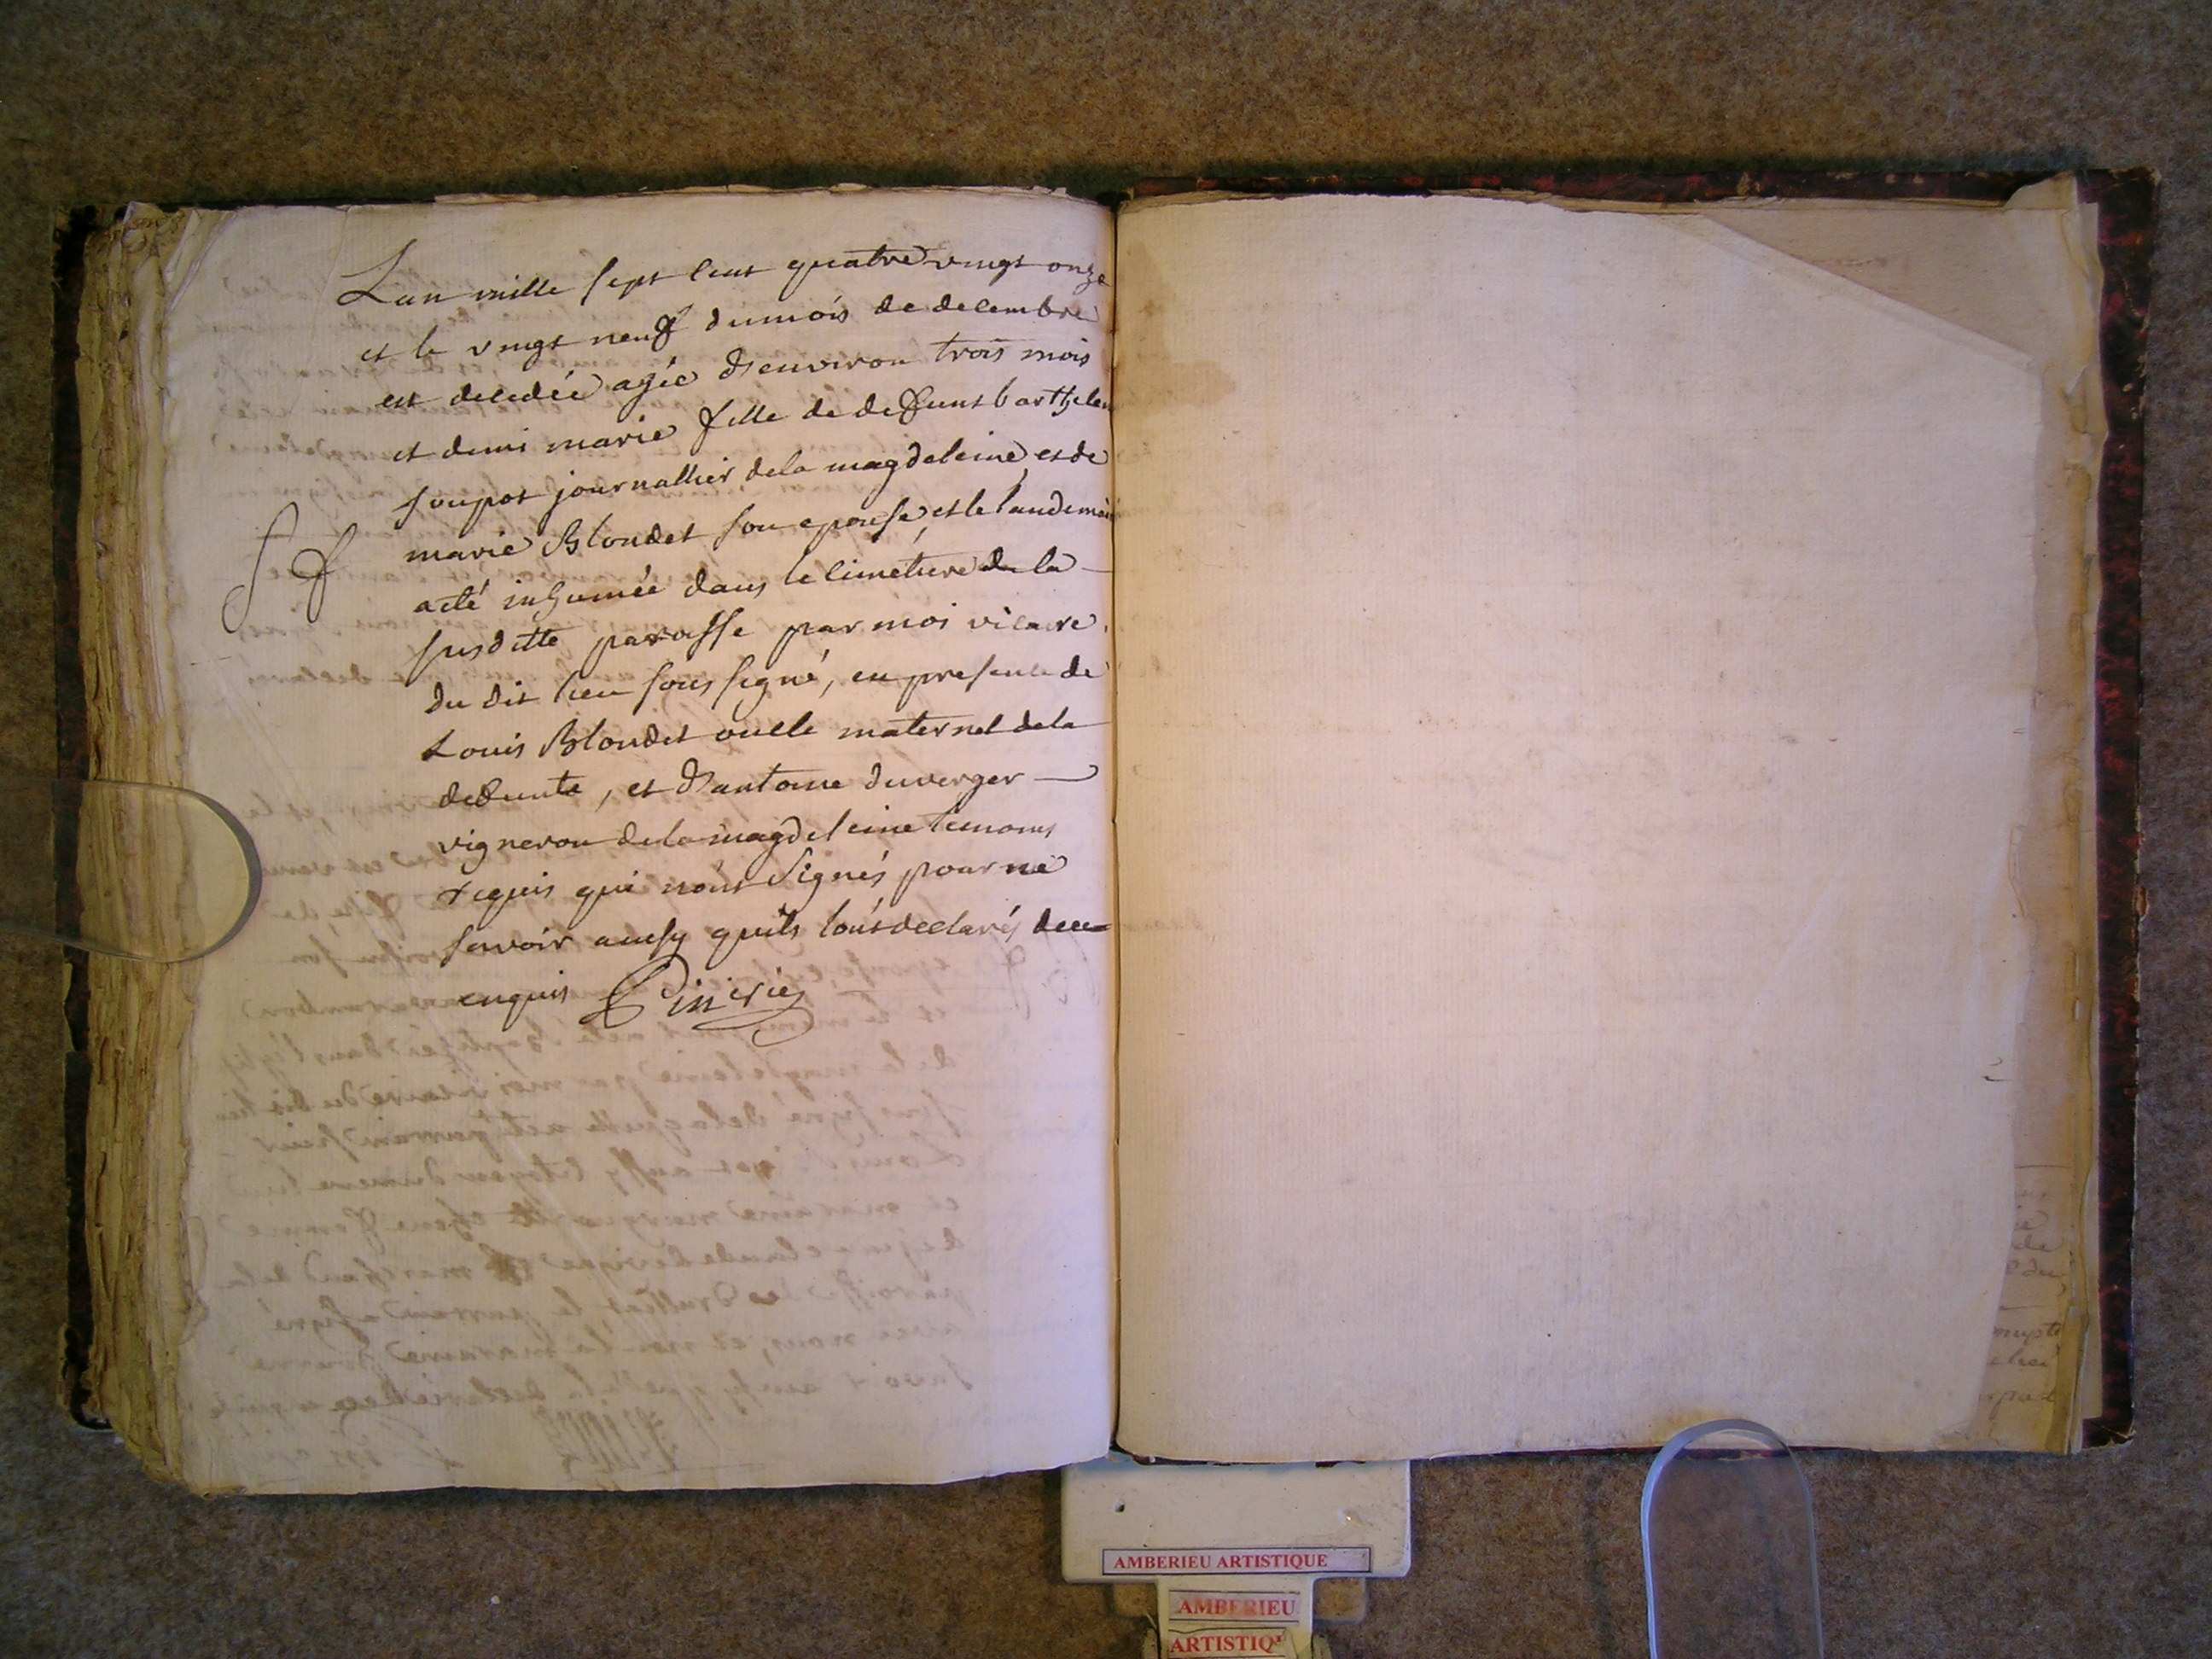 Lan mille sept cent quatre vingt onze
et le vingt neuf du mois de decembre
est decedée agée d'environ trois mois
et demi marie fille de defunt barthelem
soupot journallier de la magdeleine, et de
marie Blondet son epouse, et le landemain
a eté inhumée dans le cimetiere de la
susditte paroisse par moi vicaire
du dit lieu sous signé, en presence de
Louis Blondet oncle maternel de la
defunte, et d'antoine duverger
vigneron de la magdeleine temoins
requis qui n'ont signés pour ne
savoir ainsy quils l'ont declarés de ce
enquis
AMBERIEU ARTISTIQUE
AMBERIEU
ARTISTIQ